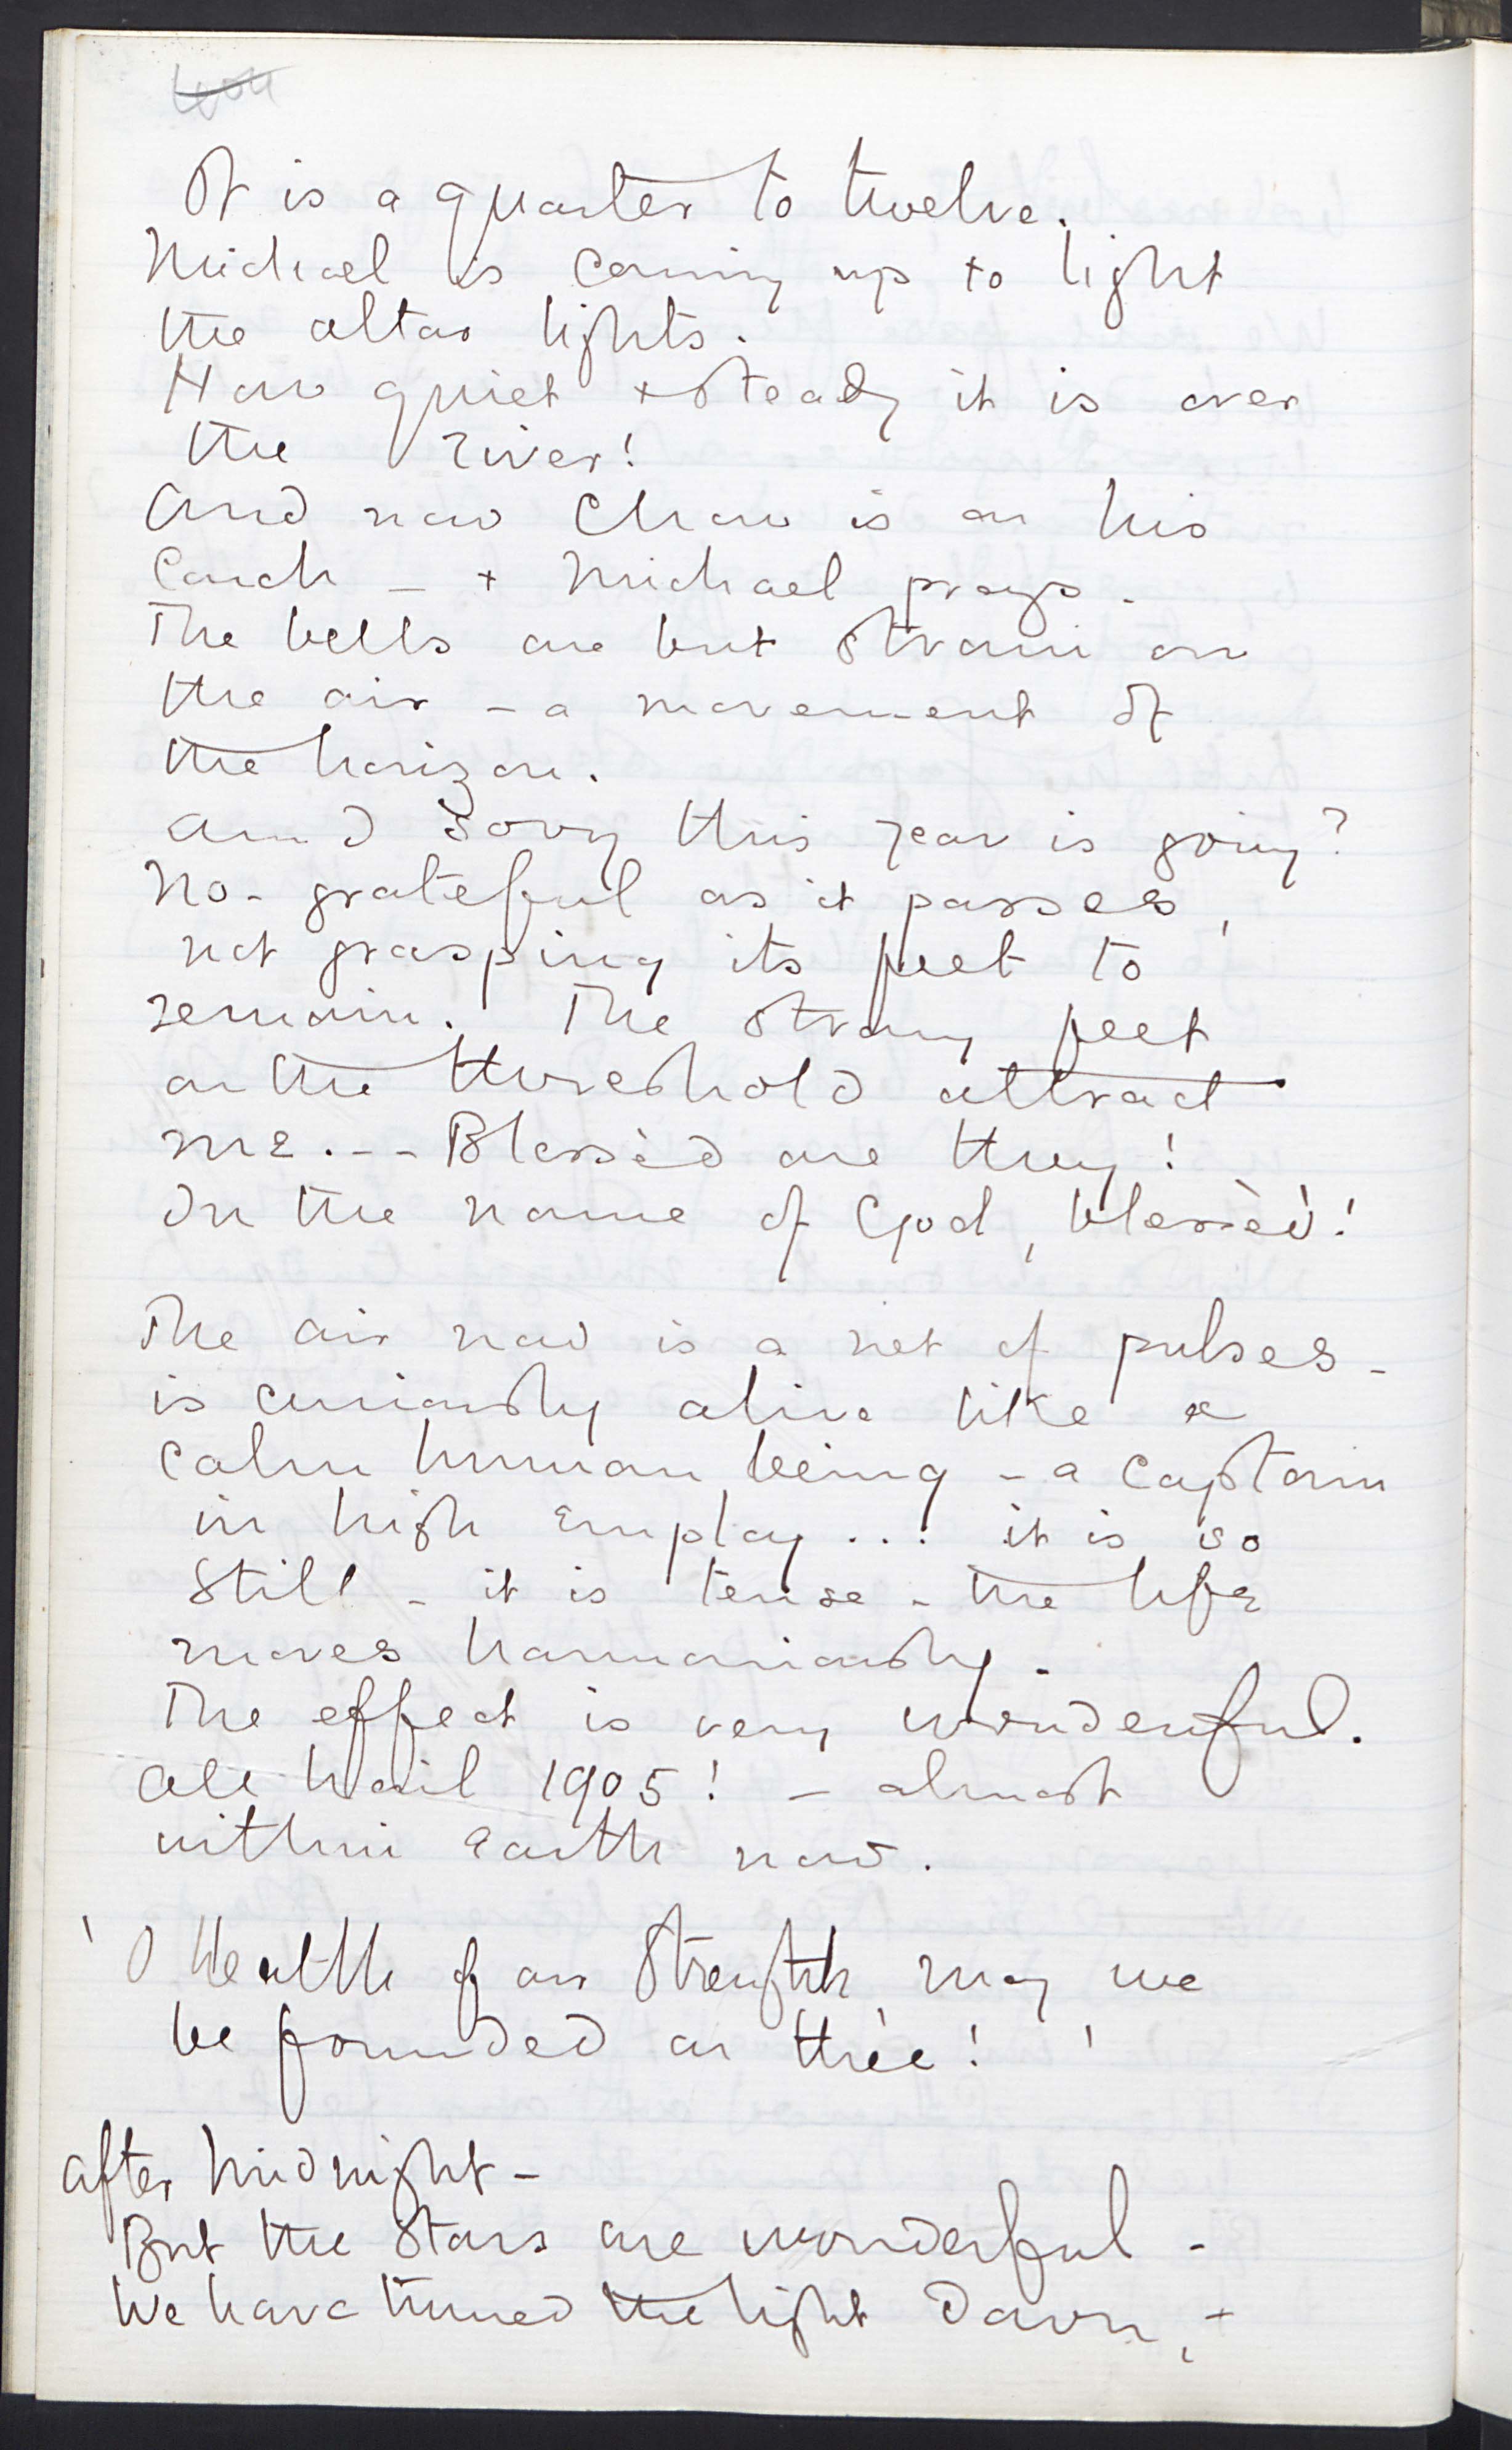 It is a quarter to twelve.
Michael is coming up to light
the altar lights.
How quiet + steady it is over
the river!
And now Chow is on his
couch – + Michael prays.
The bells are but strain on
the air – a movement of
the horizon.
Am I sorry this year is going?
No – grateful as it passes,
not grasping its feet to
remain. The strong feet
on the threshold attract
me. – – Blessèd are they!
In the name of God, blessèd!
The air now is a net of pulses –
is curiously alive like a
calm human being – a captain
in high employ... it is so
still – it is tense – the life
moves harmoniously.
The effect is very wonderful.
All hail 1905! – almost
within earth now.
'O Health of our Strength, may we
be founded on thee!'
After Midnight –
But the stars are wonderful –
We have turned the light down, +